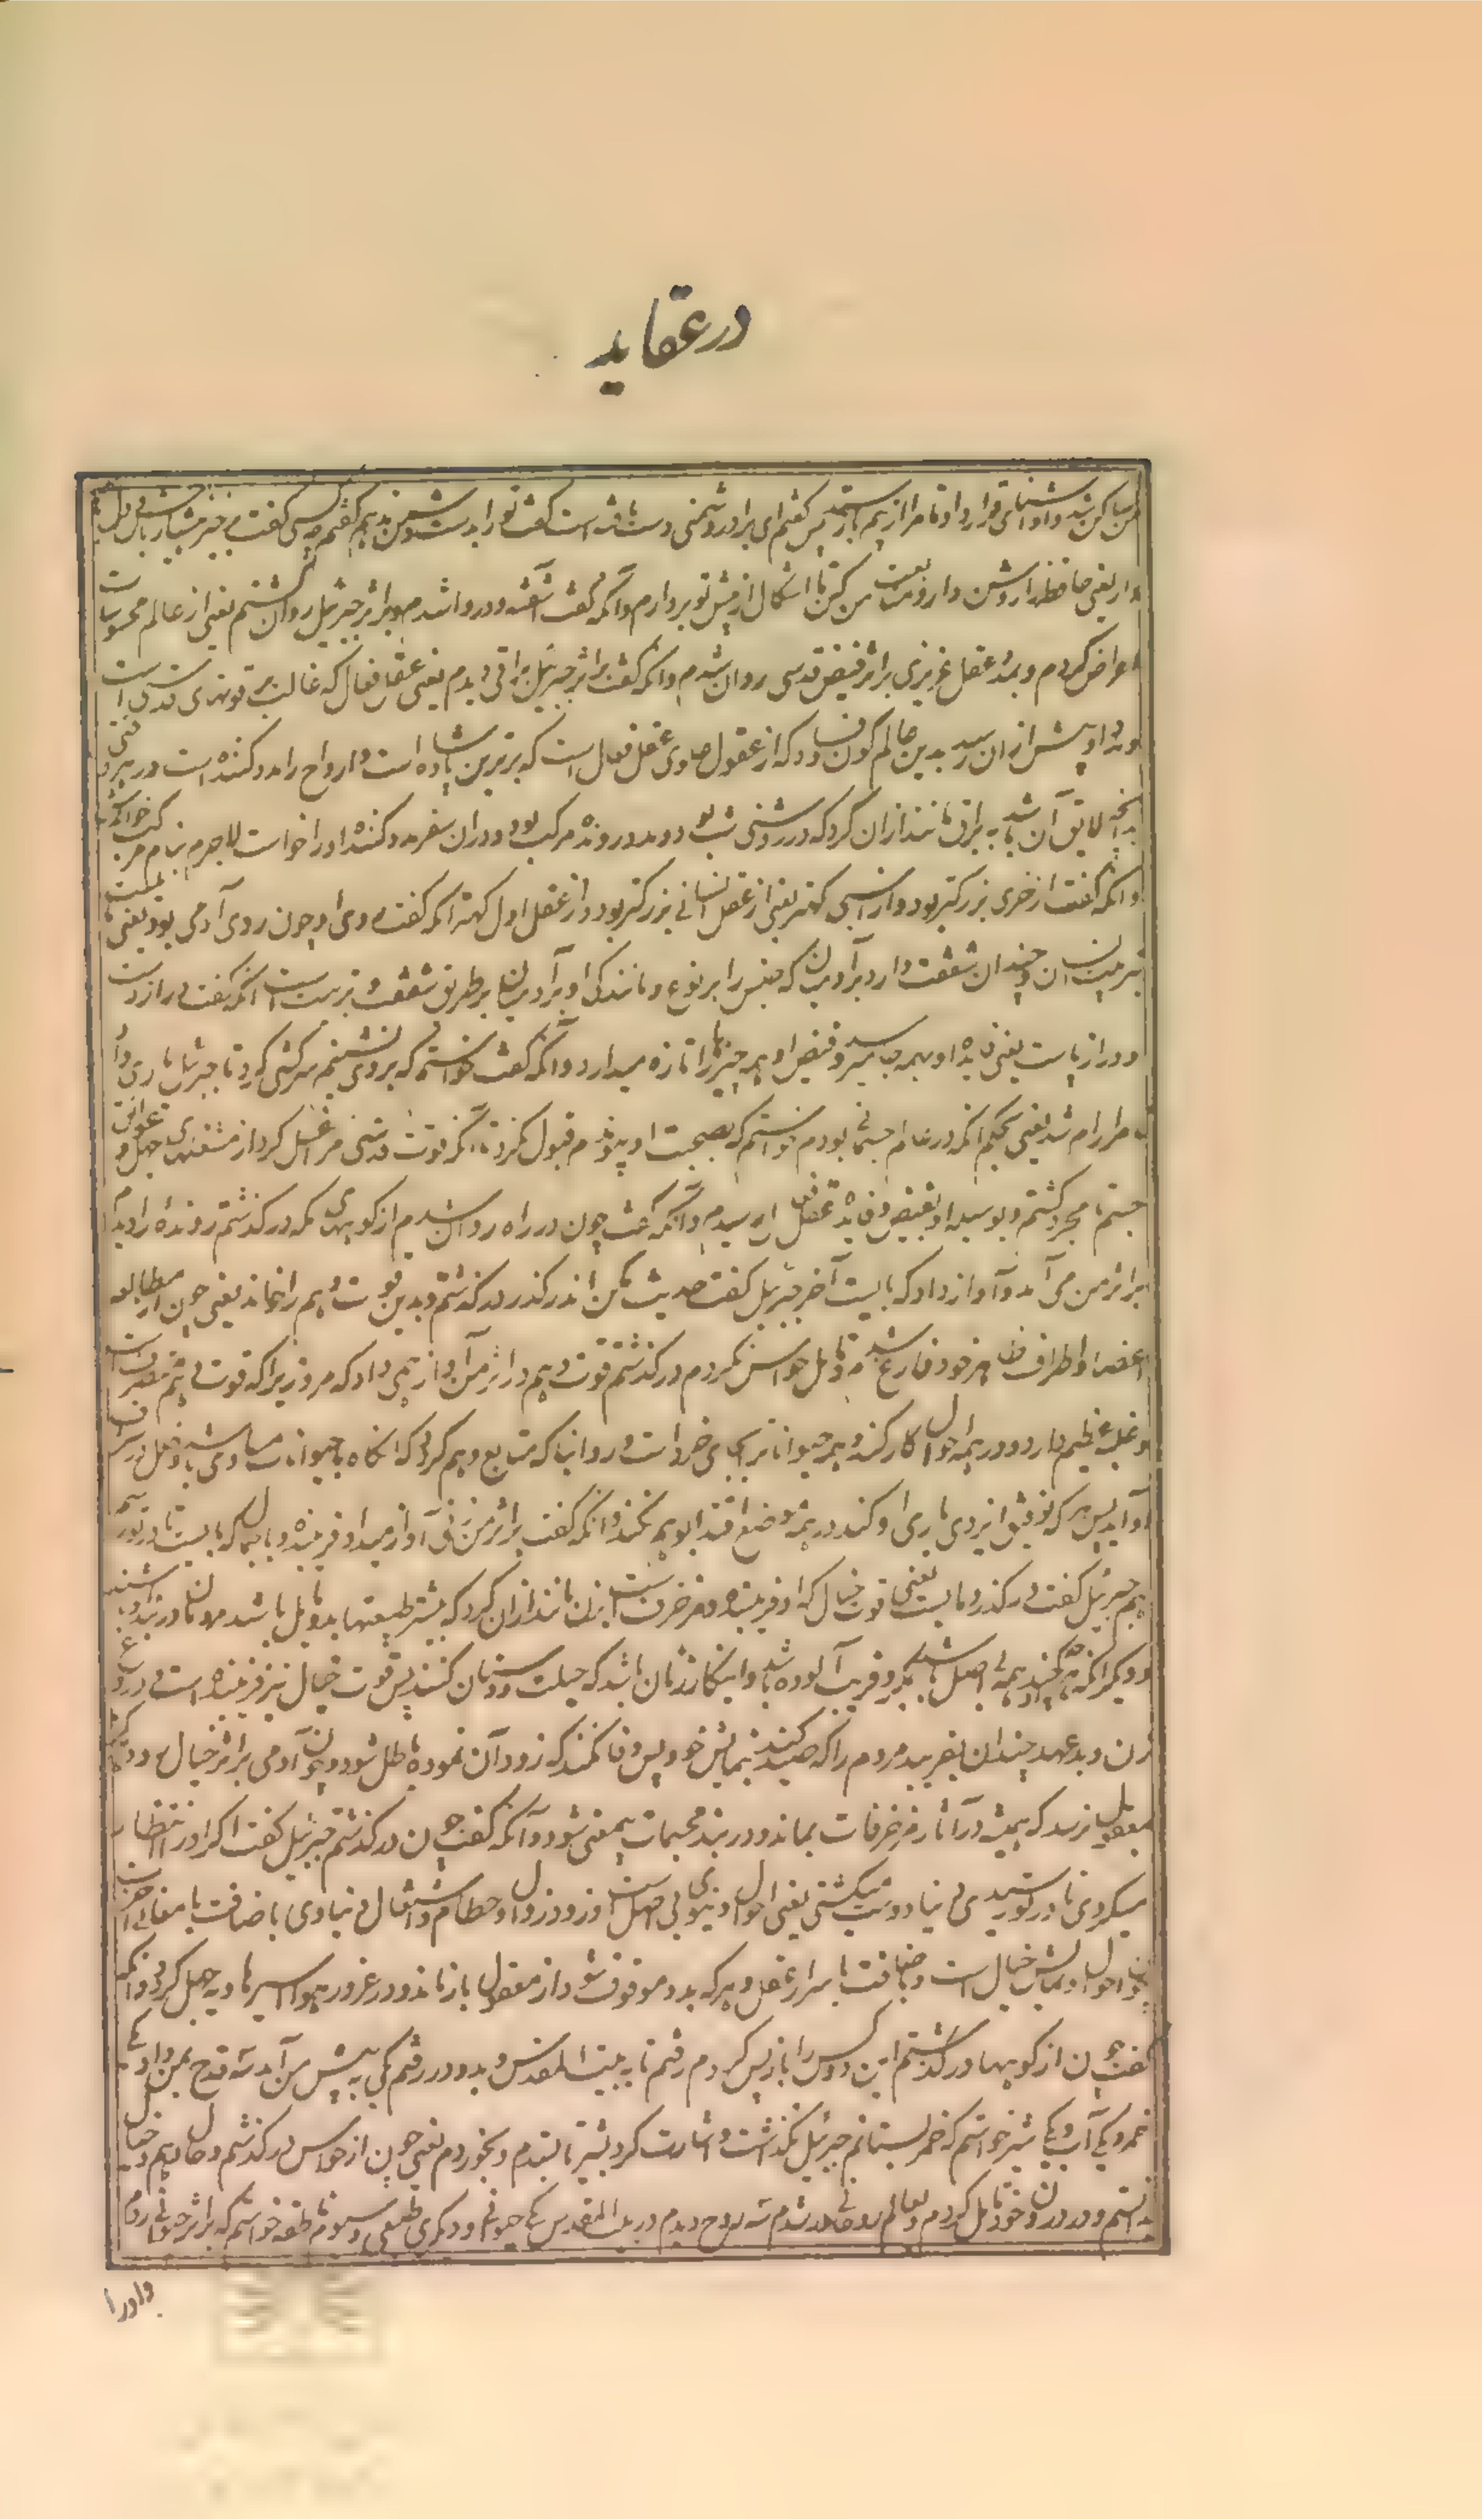 در عقاید
من ساکن شد و آشنائی فرا داد تا مرا از بیم باز ستد پس گفتم ای برادر دشمنی دست یافته است گفت ترا بدست دشمن ندهم گفتم
دار یعنی حافظه را روشن دار و متابعت من کن تا اشکال از پیش تو بردارم و آنکه گفت آشفته و دروا شدم و بر اثر جبرئیل روان گشتم یعنی از عالم محسوسات
اعراض کردم و بمدد عقل غریزی بر اثر فیض قدسی روان شدم و آنکه گفت بر اثر جبرئیل براقی دیدم یعنی عقل فعال که غالب بر قوتهای قدسی است
و مدد او بیش از آن رسد بدین عالم کون و فساد که از عقول و عقل فعال است که برترین پادشاه است و ارواح را مدد کننده است در هر وقتی
بدانچه لایق آن باشد و به براق مانند از آن کرد که در روشنی شب بود و مدد رونده مرکب بود و در آن سفر مدد کننده او را خواست لاجرم بنام مرکب خواند
و آنکه گفت از خری بزرگتر بود و از اسبی کهتر یعنی از عقل انسانی بزرگتر بود و از عقل اول کهتر آنکه گفت روی او چون روی آدمی بود یعنی
تربیت انسان و چندان شفقت دارد بر آدمیان که جنس را بر نوع و مانندگی او بآدمیان بر طریق شفقت و تربیت است آنکه گفت دراز دست
و دراز پاست یعنی فایده او بهمه جا میرسد و فیض او همه چیزها را تازه میدارد و آنکه گفت خواستم که بر وی نشینم سرکشی کرد تا جبرئیل یاری داد
مرا رام شد یعنی بحکم آنکه در عالم جسمانی بودم خواستم که بصحبت او پیوندم قبول نکرد تا آنگه قوت قدسی مرا غسل کرد از مشغلهای جهل و عوایق
جسم تا مجرد گشتم و بوسیله او بفیض و فایده عقل فعال رسیدم و آنکه گفت چون در راه روان شدم از کوههای مکه درگذشتم رونده را دیدم
بر اثر من می آمد و آواز داد که بایست آخر جبرئیل گفت حدیث مکن و اندر گذر درگذشتم و بدین قوت وهم را خواند یعنی چون از مطالعه
اعضا و اطراف ظاهر خود فارغ شدم و تامل حواس نکردم درگذشتم قوت وهم در اثر من آواز همی داد که مرو زیرا که قوت وهم متصرف است
و غلبه عظیم دارد و در همه احوال کار کند و همه حیوانات را بجای خرد است و روا نباشد که متابع وهم گردد که آنگاه با حیوانات مساوی باشد و خلل در شرف
او آید پس هر که توفیق ایزدی یاری او کند در همه موضع اقتدا بوهم نکند و آنکه گفت بر اثر من زنی آواز میداد فریبنده و با جمال که بایست تا در تو رسم
هم جبرئیل گفت در گذر و مایست یعنی قوت خیال که او فریبنده و مزخرف است بزن مانند از آن کرد که بیشتر طبعتها بدو مایل باشد و مردمان در بند او باشند
و دیگر آنکه هر چه کند همه بی اصل باشد و بمکر و فریب آلوده باشد و این کار زنان باشد که حیلت و دستان کنند پس قوت خیال نیز فریبنده است و دروغ
زن و بدعهد چندان بفریبد مردم را که صید کند بنمایش خود پس وفا نکند که زود آن نموده باطل شود و چون آدمی بر اثر خیال رود
بمعقول نرسد که همیشه در آثار مزخرفات بماند و در بند مجسمات بیمعنی شود و آنکه گفت چون درگذشتم جبرئیل گفت اگر او را انتظار
میکردی تا در تو رسیدی دنیا دوست میگشتی یعنی احوال دنیوی بی اصل است و زود زوال و حطام و اشغال دنیاوی باضافت با معانی آخرت
چون احوال و نمایش خیال است و باضافت با اسرار عقل و هر که بدو موقوف شود از معقول باز ماند و در غرور هوا اسیر هاویه جهل گردد و آنکه
گفت چون از کوهها درگذشتم این دو کس را باز پس کردم رفتم تا به بیت المقدس و بدو در رفتم یکی به پیش من آمد و سه قدح بمن داد یکی
خمر و یکی آب و یکی شیر خواستم که خمر بستانم جبرئیل نگذاشت و اشارت کرد بشیر تا بستدم و بخوردم یعنی چون از حواس درگذشتم و حال وهم و خیال
بدانستم و در درون خود تامل کردم و بعالم روحانی در شدم سه روح دیدم در بیت المقدس یکی حیوانی و دیگری طبیعی و سیوم ناطقه خواستم که بر اثر حیوانی روم
و او را